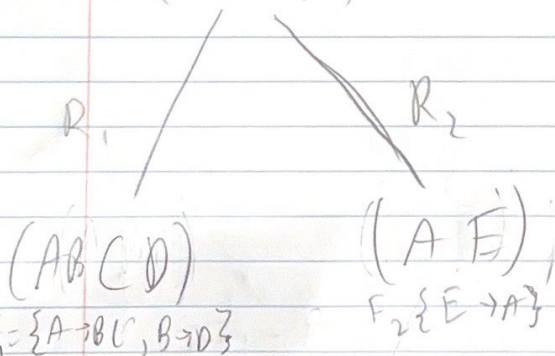 R1 R2
(ABCD) (A E)
={A→BC, B→D} F2{E→A}